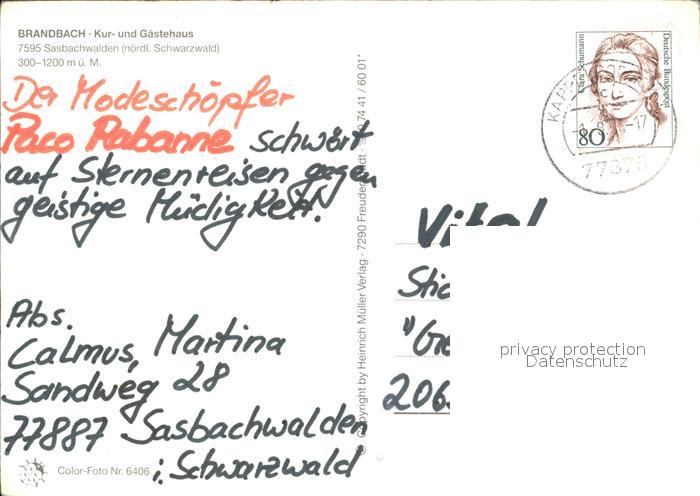 BRANDBACH · Kur- und Gästehaus
7595 Sasbachwalden (nördl. Schwarzwald)
300–1200 m ü. M.
Der Modeschöpfer
Paco Rabanne schwört
auf Sternenreisen gegen
geistige Müdigkeit.
Abs.
Calmus, Martina
Sandweg 28
77887 Sasbachwalden
i. Schwarzwald
Color-Foto Nr. 6406
© Copyright by Heinrich Müller Verlag · 7290 Freudenstadt · 74 41 / 60 01*
Clara Schumann
Deutsche Bundespost
80
77876
Vital
206
privacy protection
Datenschutz